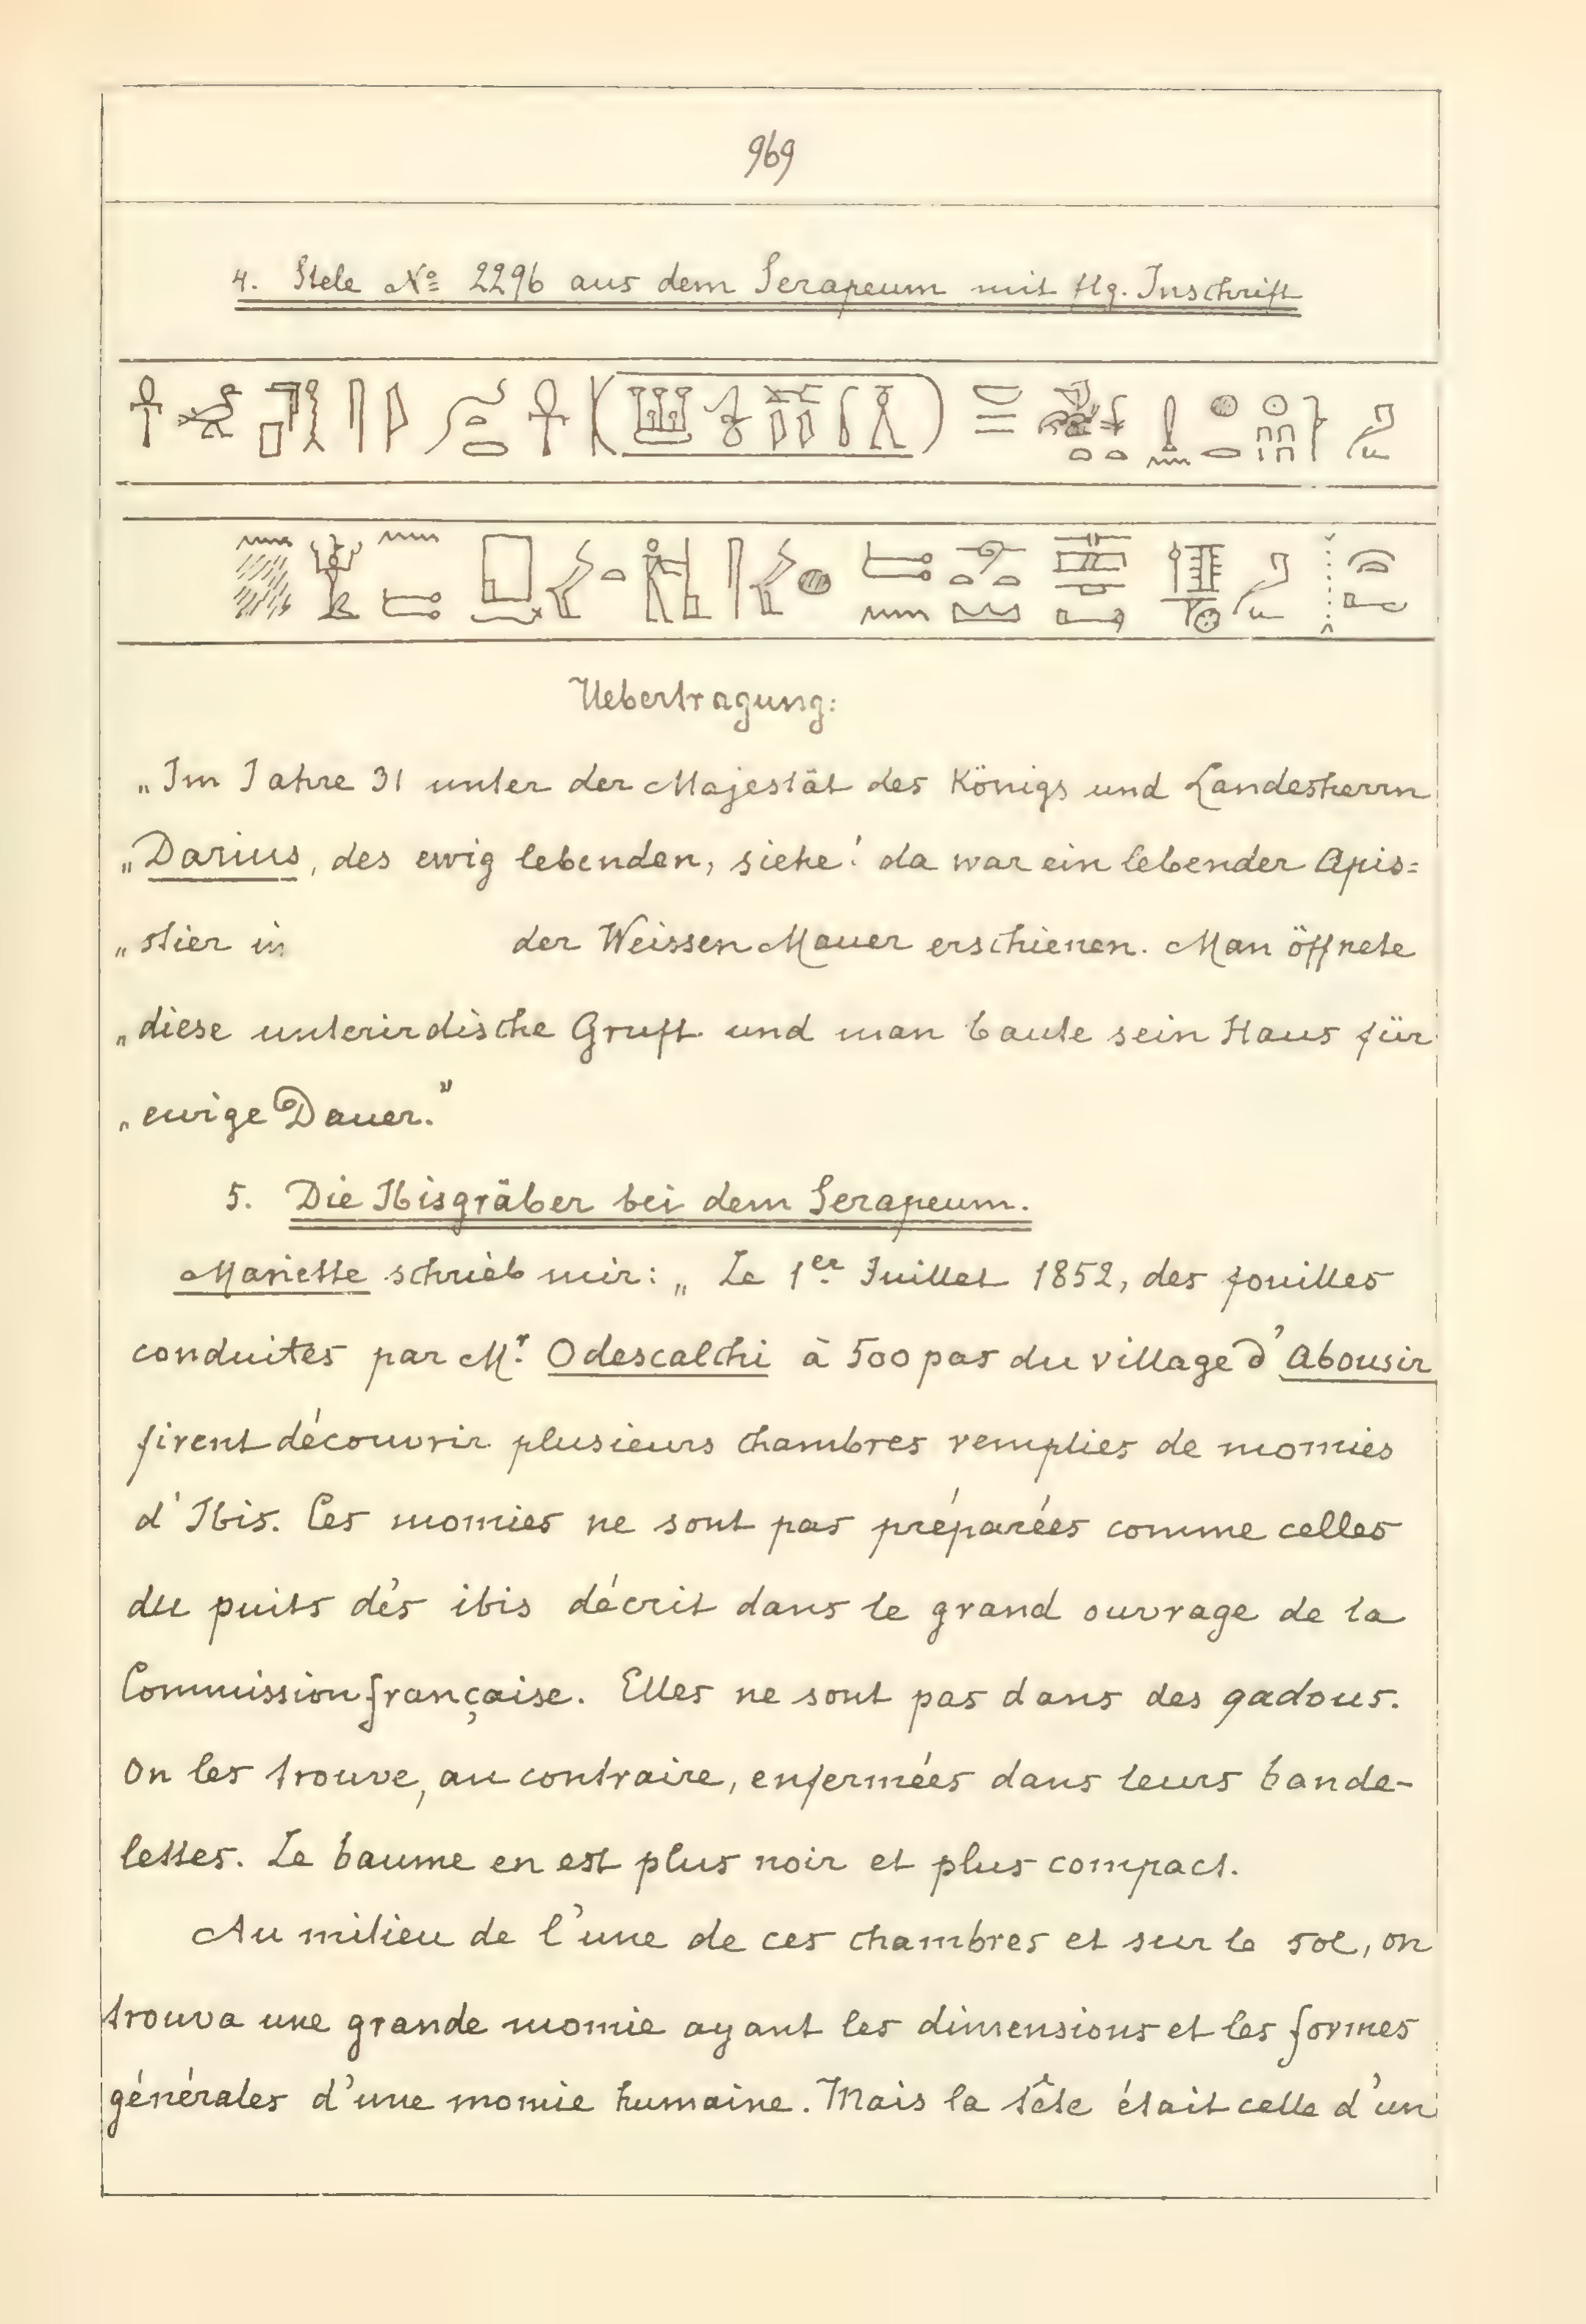 969
4. Stele No 2296 aus dem Serapeum mit Hg. Inschrift
Uebertragung:
„Im Jahre 31 unter der Majestät des Königs und Landesherrn
„Darius, des ewig lebenden, siehe! da war ein lebender Apis=
„stier in der Weissen Mauer erschienen. Man öffnete
„diese unterirdische Gruft und man baute sein Haus für
„ewige Dauer.”
5. Die Ibisgräber bei dem Serapeum.
Mariette schrieb mir: „Le 1er Juillet 1852, des fouilles
conduites par Mr. Odescalchi à 500 pas du village d'Abousir
firent découvrir plusieurs chambres remplies de momies
d'Ibis. Ces momies ne sont pas préparées comme celles
du puits des ibis décrit dans le grand ouvrage de la
Commission française. Elles ne sont pas dans des qadous.
On les trouve, au contraire, enfermées dans leurs bande-
lettes. Le baume en est plus noir et plus compact.
Au milieu de l'une de ces chambres et sur le sol, on
trouva une grande momie ayant les dimensions et les formes
générales d'une momie humaine. Mais la tête était celle d'un